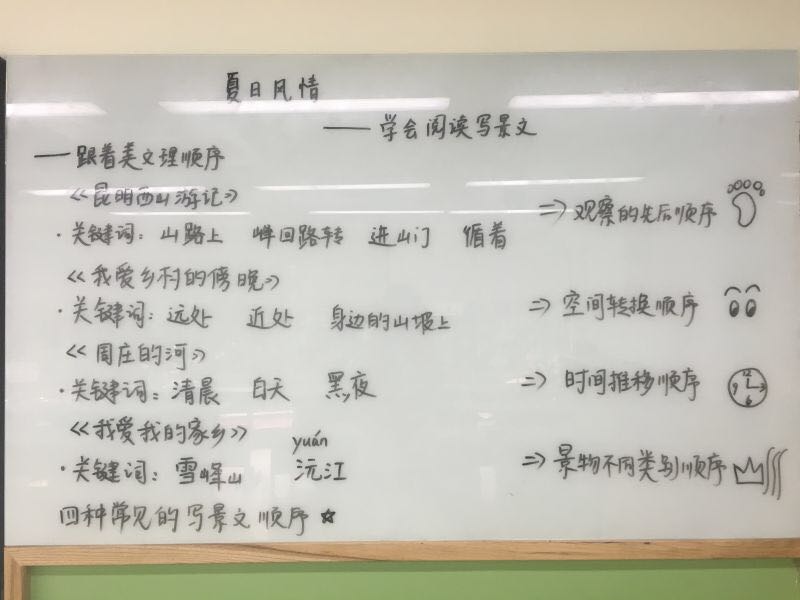 夏日风情
——学会阅读写景文
——跟着美文理顺序
《昆明西山游记》
·关键词：山路上 峰回路转 进山门 循着 ⇒观察的先后顺序
《我爱乡村的傍晚》
·关键词：远处 近处 身边的山坡上 ⇒空间转换顺序
《周庄的河》
·关键词：清晨 白天 黑夜 ⇒时间推移顺序 12 3 6 9
《我爱我的家乡》
yuán
·关键词：雪峰山 沅江 ⇒景物不同类别顺序
四种常见的写景文顺序☆